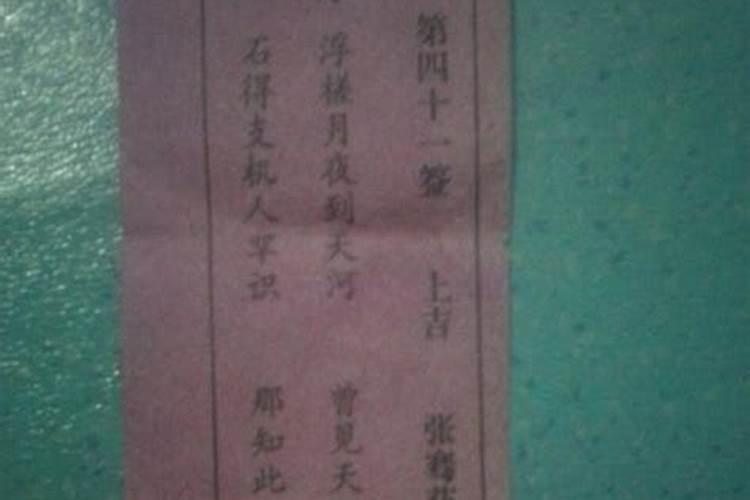 第四十一签 上吉 张骞
浮槎月夜到天河 曾见天
石得支机人罕识 那知此